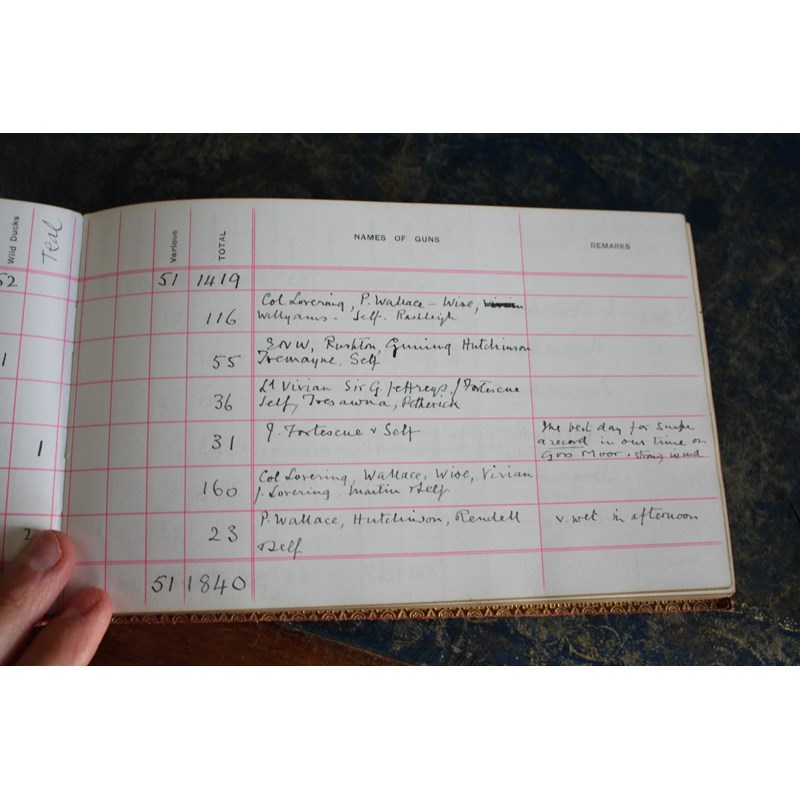 Wild Ducks Teal Various TOTAL NAMES OF GUNS REMARKS
52 51 1419
116 Col Lovering, P. Wallace - Wise,
Willyams - Self. Rashleigh
1 55 Rushton, Gunning Hutchinson
Tremayne, Self
36 Lt Vivian Sir G Jeffreys J Fortescue
Self, Tresawna, Petherick
1 31 J. Fortescue & Self The best day for Snipe
a record in our time on
Goss Moor. strong wind
160 Col Lovering, Wallace, Wise, Vivian
J. Lovering Martin & Self
2 23 P. Wallace, Hutchinson, Rendell v. wet in afternoon
& Self
51 1840